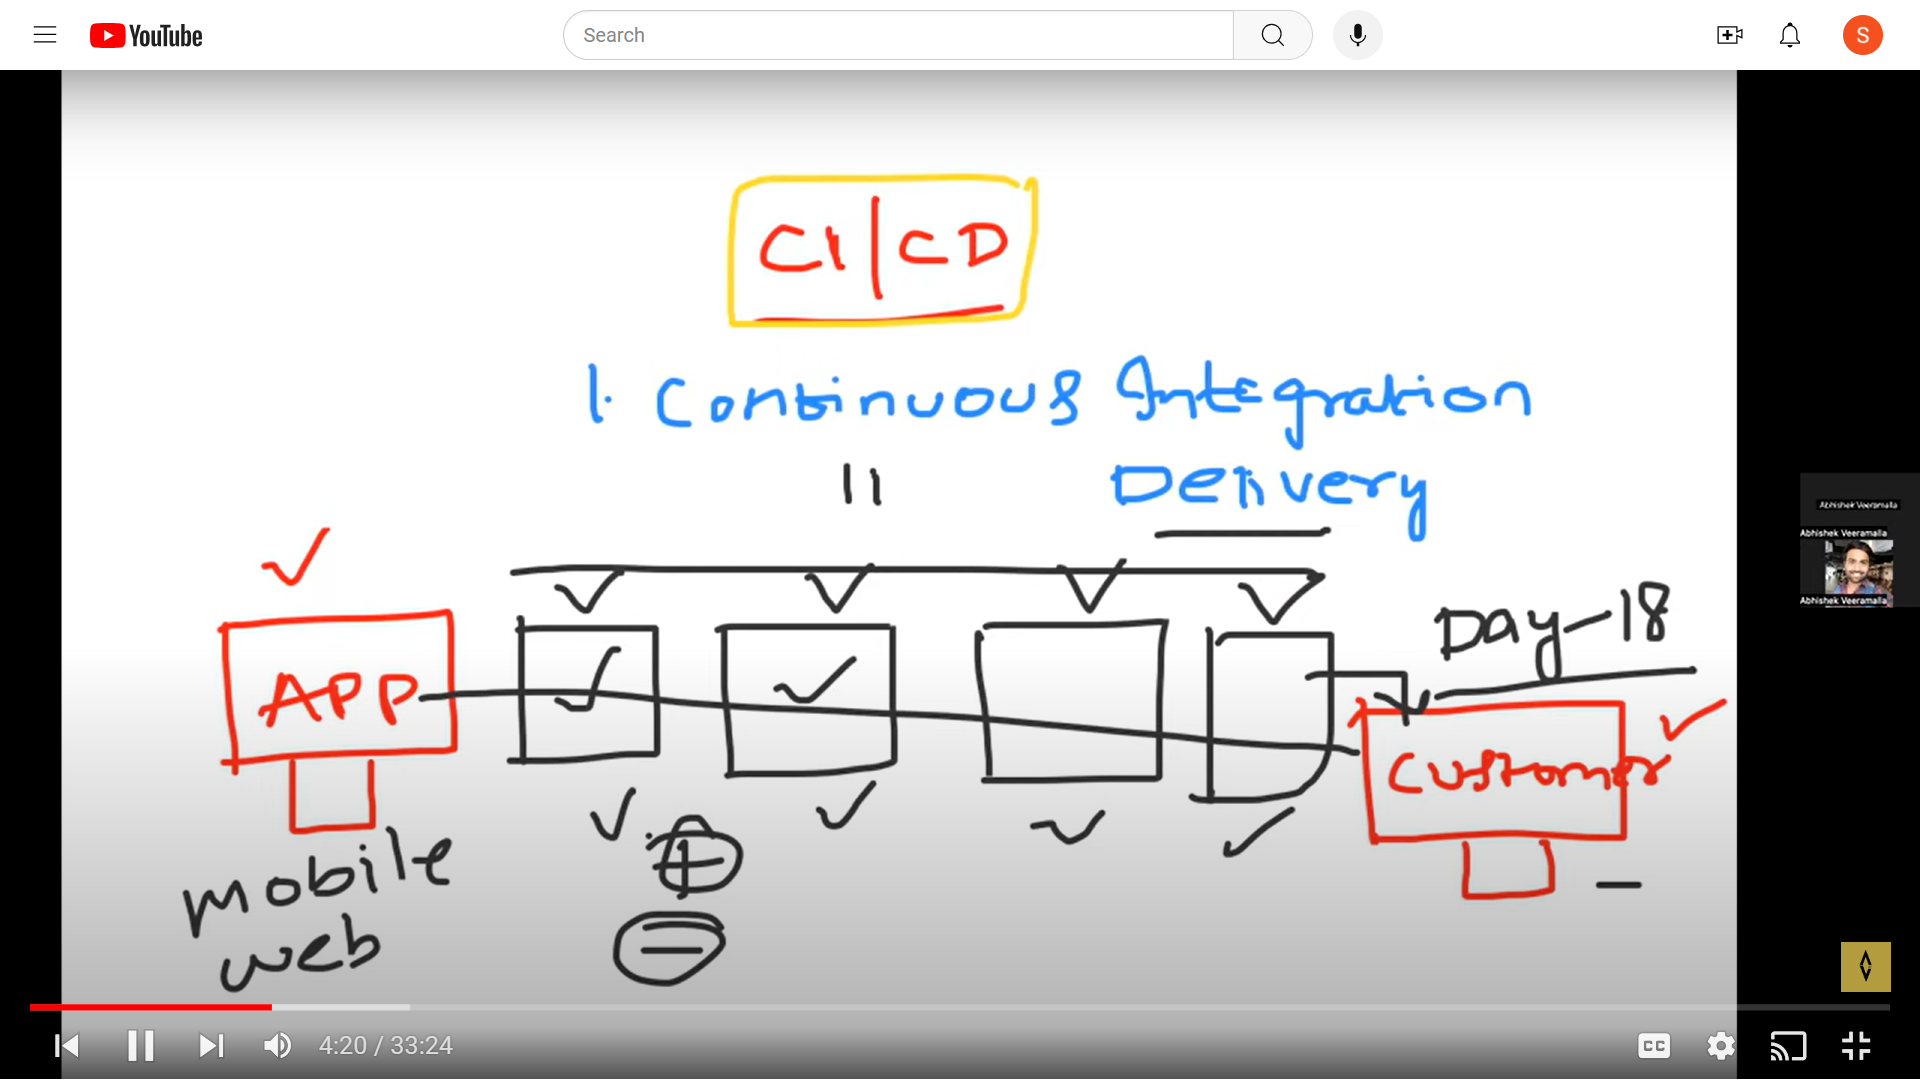 YouTube
Search
S
CI|CD
1. Continuous Integration
11 Delivery
Day-18
APP
Customer
mobile
web
Abhishek Veeramalla
Abhishek Veeramalla
Abhishek Veeramalla
4:20 / 33:24
CC